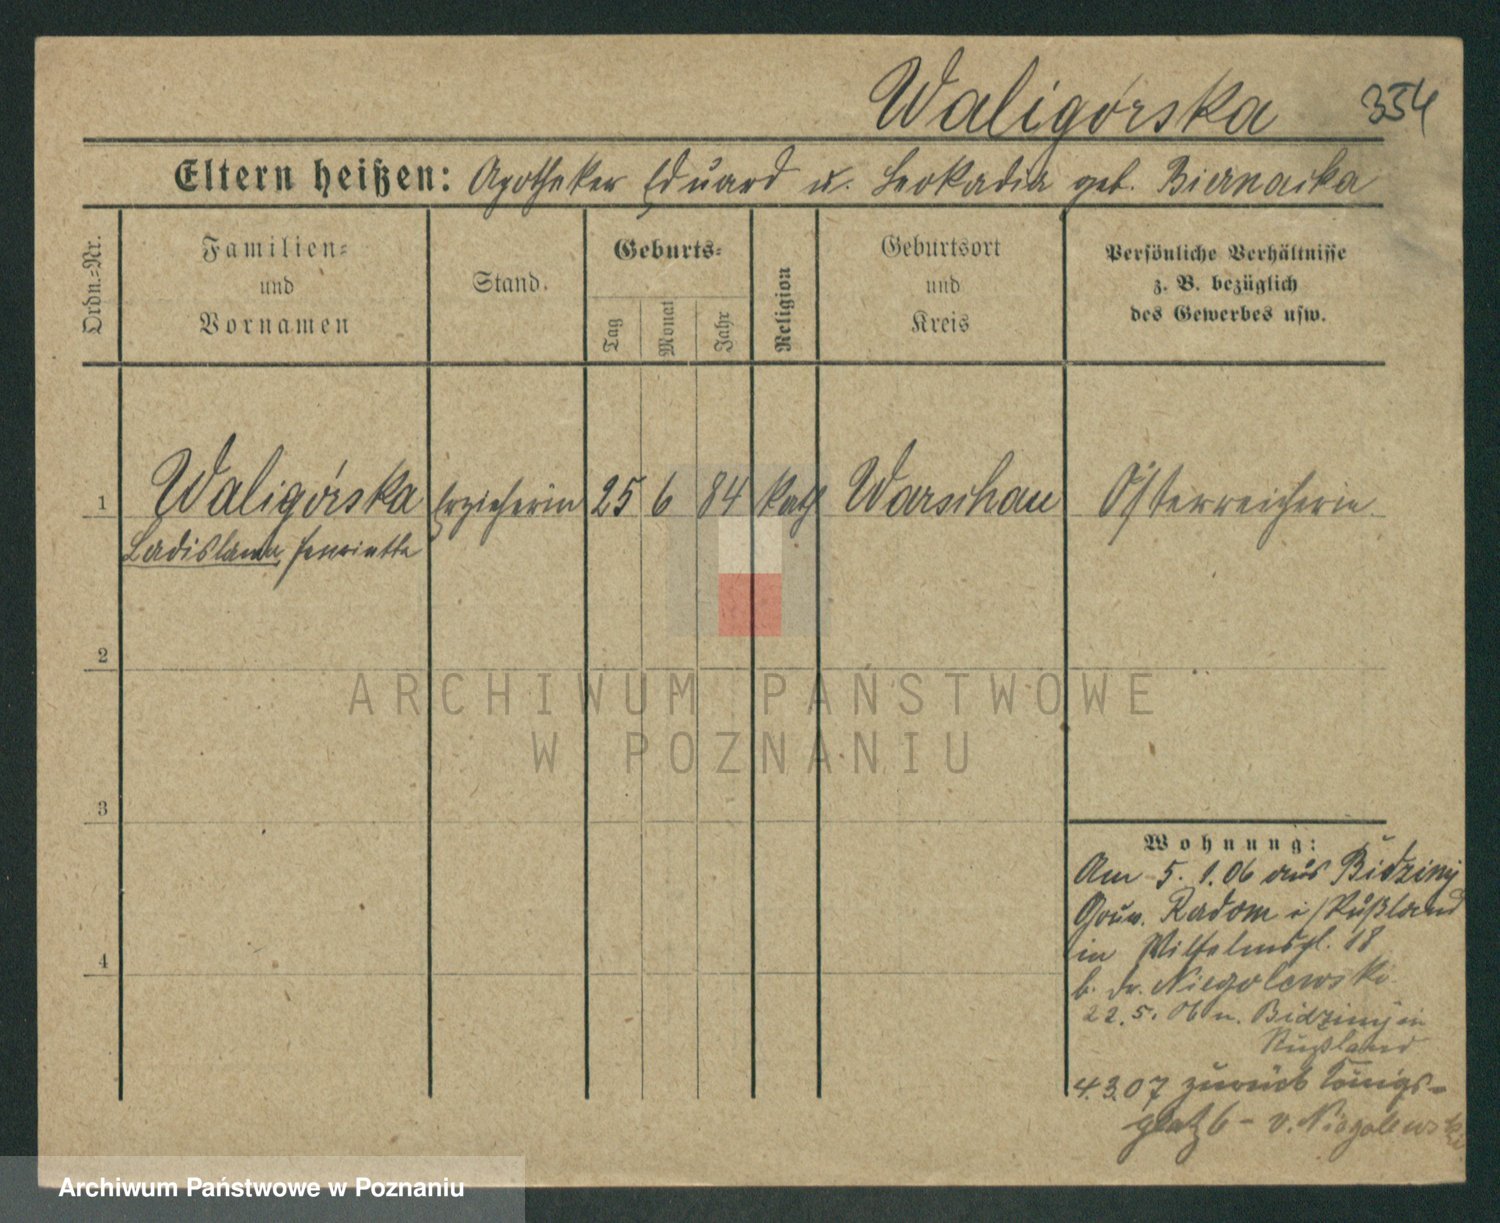 Waligórska 354
Eltern heißen: Apotheker Eduard u. Leokadia geb. Biernacka
Ordn.-Nr.
Familien-
und
Vornamen
Stand.
Geburts-
Tag
Monat
Jahr
Religion
Geburtsort
und
Kreis
Persönliche Verhältnisse
z. B. bezüglich
des Gewerbes usw.
1 Waligórska Erzieherin 25 6 84 kath Warschau Österreicherin
Ladislawa Henriette
2
3
4
Wohnung:
Am 5.1.06 aus Bidziny
Gouv. Radom i/Rußland
in Wilhelmspl. 18
b. Dr. Niegolewski
22.5.06 n. Bidziny in
Rußland
4.3.07 zurück Königs-
platz 6 - v. Niegolewski
ARCHIWUM PAŃSTWOWE
W POZNANIU
Archiwum Państwowe w Poznaniu